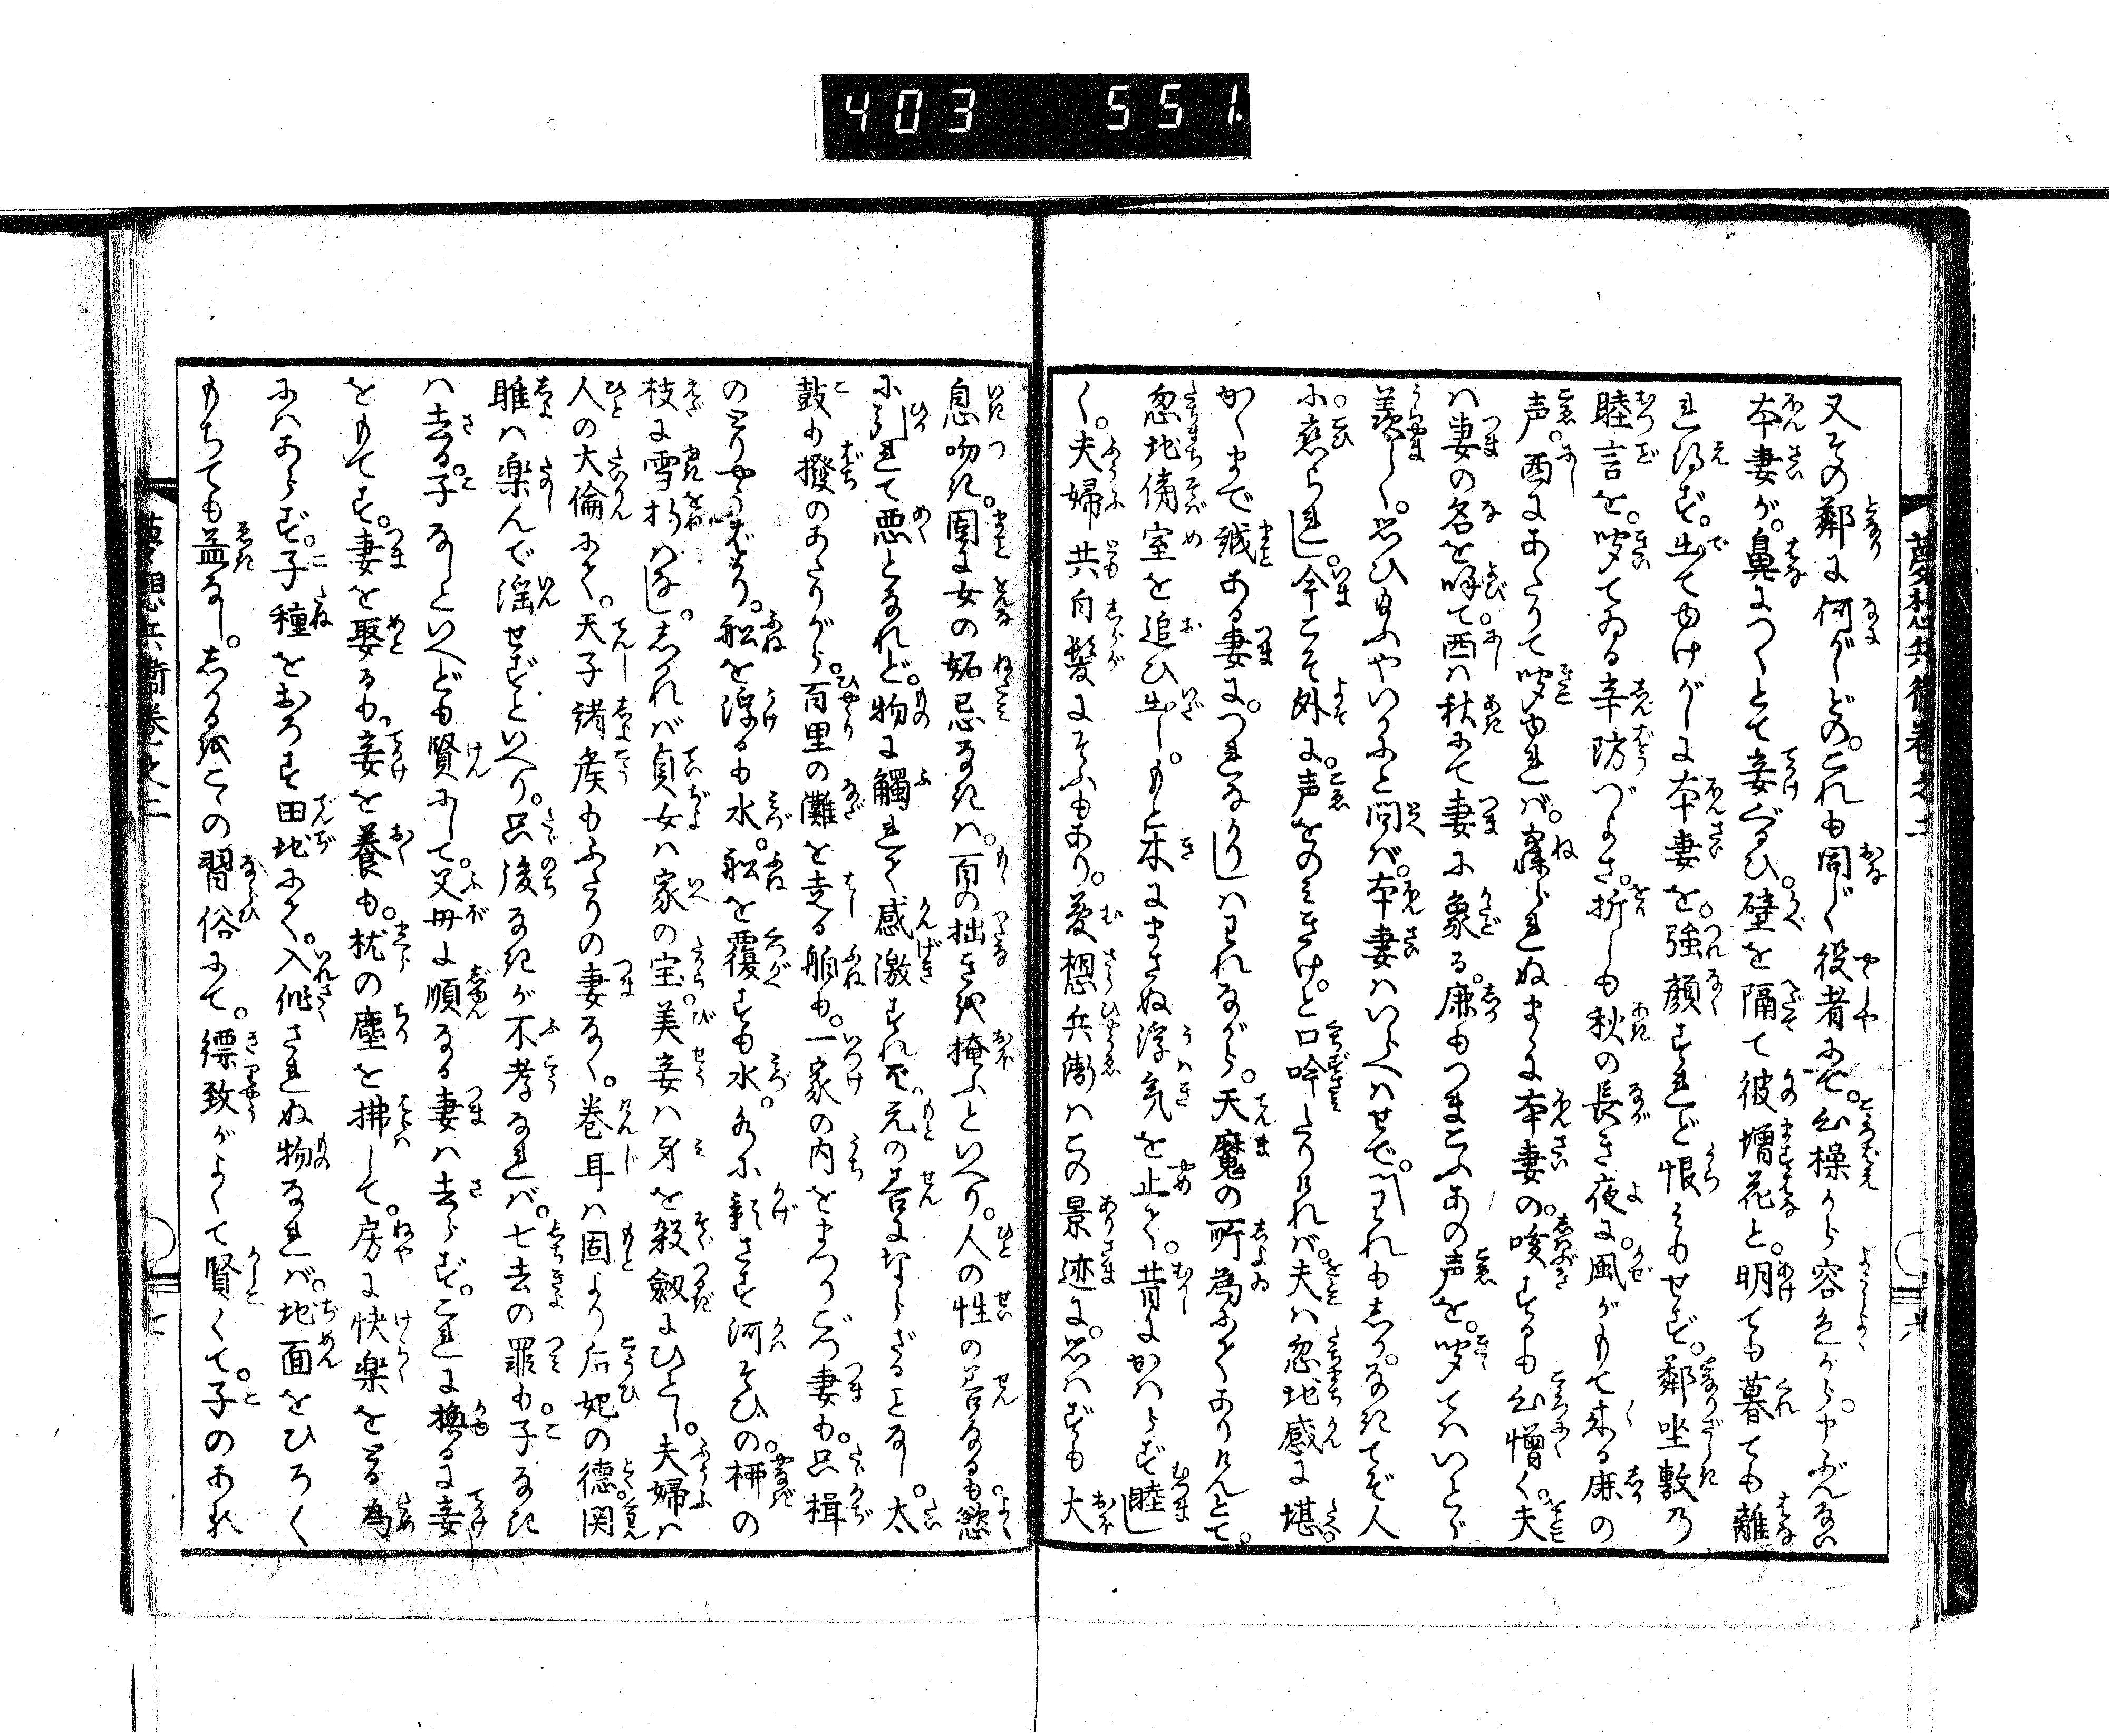 403 551
夢想兵衛巻之二
六
又その鄰に何がしどの。これも同じく役者にて。心操から容色から。申ぶんない
本妻が。鼻につくとて妾ぐるひ。壁を隔て彼増花と。明ても暮ても離
れ得ず。出てゆけがしに本妻を。強顔すれど恨みもせず。鄰坐敷乃
睦言を。聞てゐる辛防づよさ。折しも秋の長き夜に。風がもて来る鹿の
声。酉にあたりて聞ゆれば。寐られぬまゝに本妻の。咳するも心憎く。夫
ハ妻の名を呼て酉ハ秋にて妻に象る。鹿もつまこふあの声を。聞てハいとゞ
羨し。思ひ給ふやいかにと問ば。本妻ハいらへハせで。われもしか。なきてぞ人
に。恋られし。今こそ外に。声をのミきけ。と口吟たりければ。夫ハ忽地感に堪。
かくまで誠ある妻に。つれなかりしハわれながら。天魔の所為にてありけんとて。
忽地傍室を追ひ出し。もと木にまさぬ浮気を止て。昔にかハらず睦し
く。夫婦共白髪にそふもあり。夢想兵衛ハこの景迹に。思ハずも大
息吻き。固に女の妬忌なきハ。百の拙きを掩ふといへり。人の性の善なるも。慾
に引れて悪となれど。物に觸れて感激すれバ。元の善にならざることなし。太
鼓も撥のあたりがら。百里の灘を走る船も。一家の内をまつりごつ妻も。只楫
のとりやうぞかし。船を浮るも水。船を覆すも水。水に影さす河そひの。柳の
枝に雪折ハなし。しかれバ貞女ハ家の宝。美妾ハ牙を殺劔にひとし。夫婦ハ
人の大倫にて。天子諸矦もふたりの妻なく。巻耳ハ固より后妃の徳。関
雎ハ楽んで淫せずといへり。只後なきが不孝なれバ。七去の罪も。子なき
ハ去る。子なしといへども賢にして。父母に順なる妻ハ去らず。これに換るに妾
をもてす。妻を娶るも妾を養も。枕の塵を拂して。房に快楽をする為
にハあらず。子種をおろす田地にて。入作されぬ物なれバ。地面をひろく
もちても益なし。しかるをこゝの習俗にて。縹致がよくて賢くて。子のあれ
夢想兵衛巻之二
七